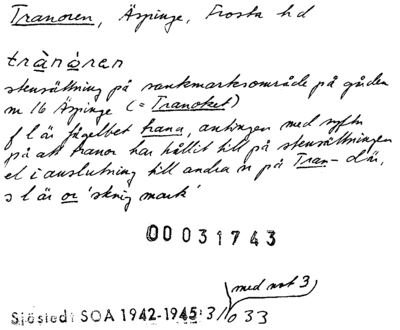 Tranoren, Äspinge, Frosta hd
trànóren
stensättning på sankmarksområde på gården
nr 16 Äspinge (= Tranoket)
f l är fågelbet trana, antingen med syftn
på att tranor har hållit till på stensättningen
el i anslutning till andra n på Tran- där,
s l är or 'stenig mark'
00031743
med not 3)
Sjöstedt SOA 1942-1945: 3/1033